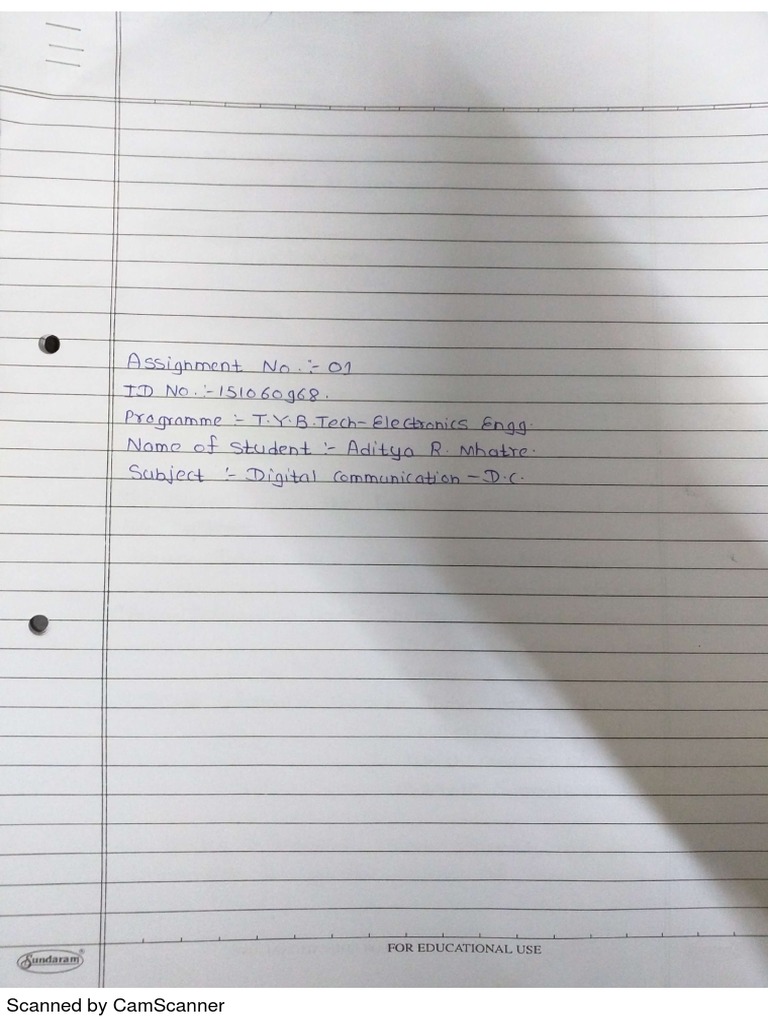 Assignment No. :- 01
ID No. :- 151060968.
Programme :- T.Y.B.Tech- Electronics Engg.
Name of Student :- Aditya R. Mhatre.
Subject :- Digital Communication - D.C.
FOR EDUCATIONAL USE
Sundaram®
Scanned by CamScanner